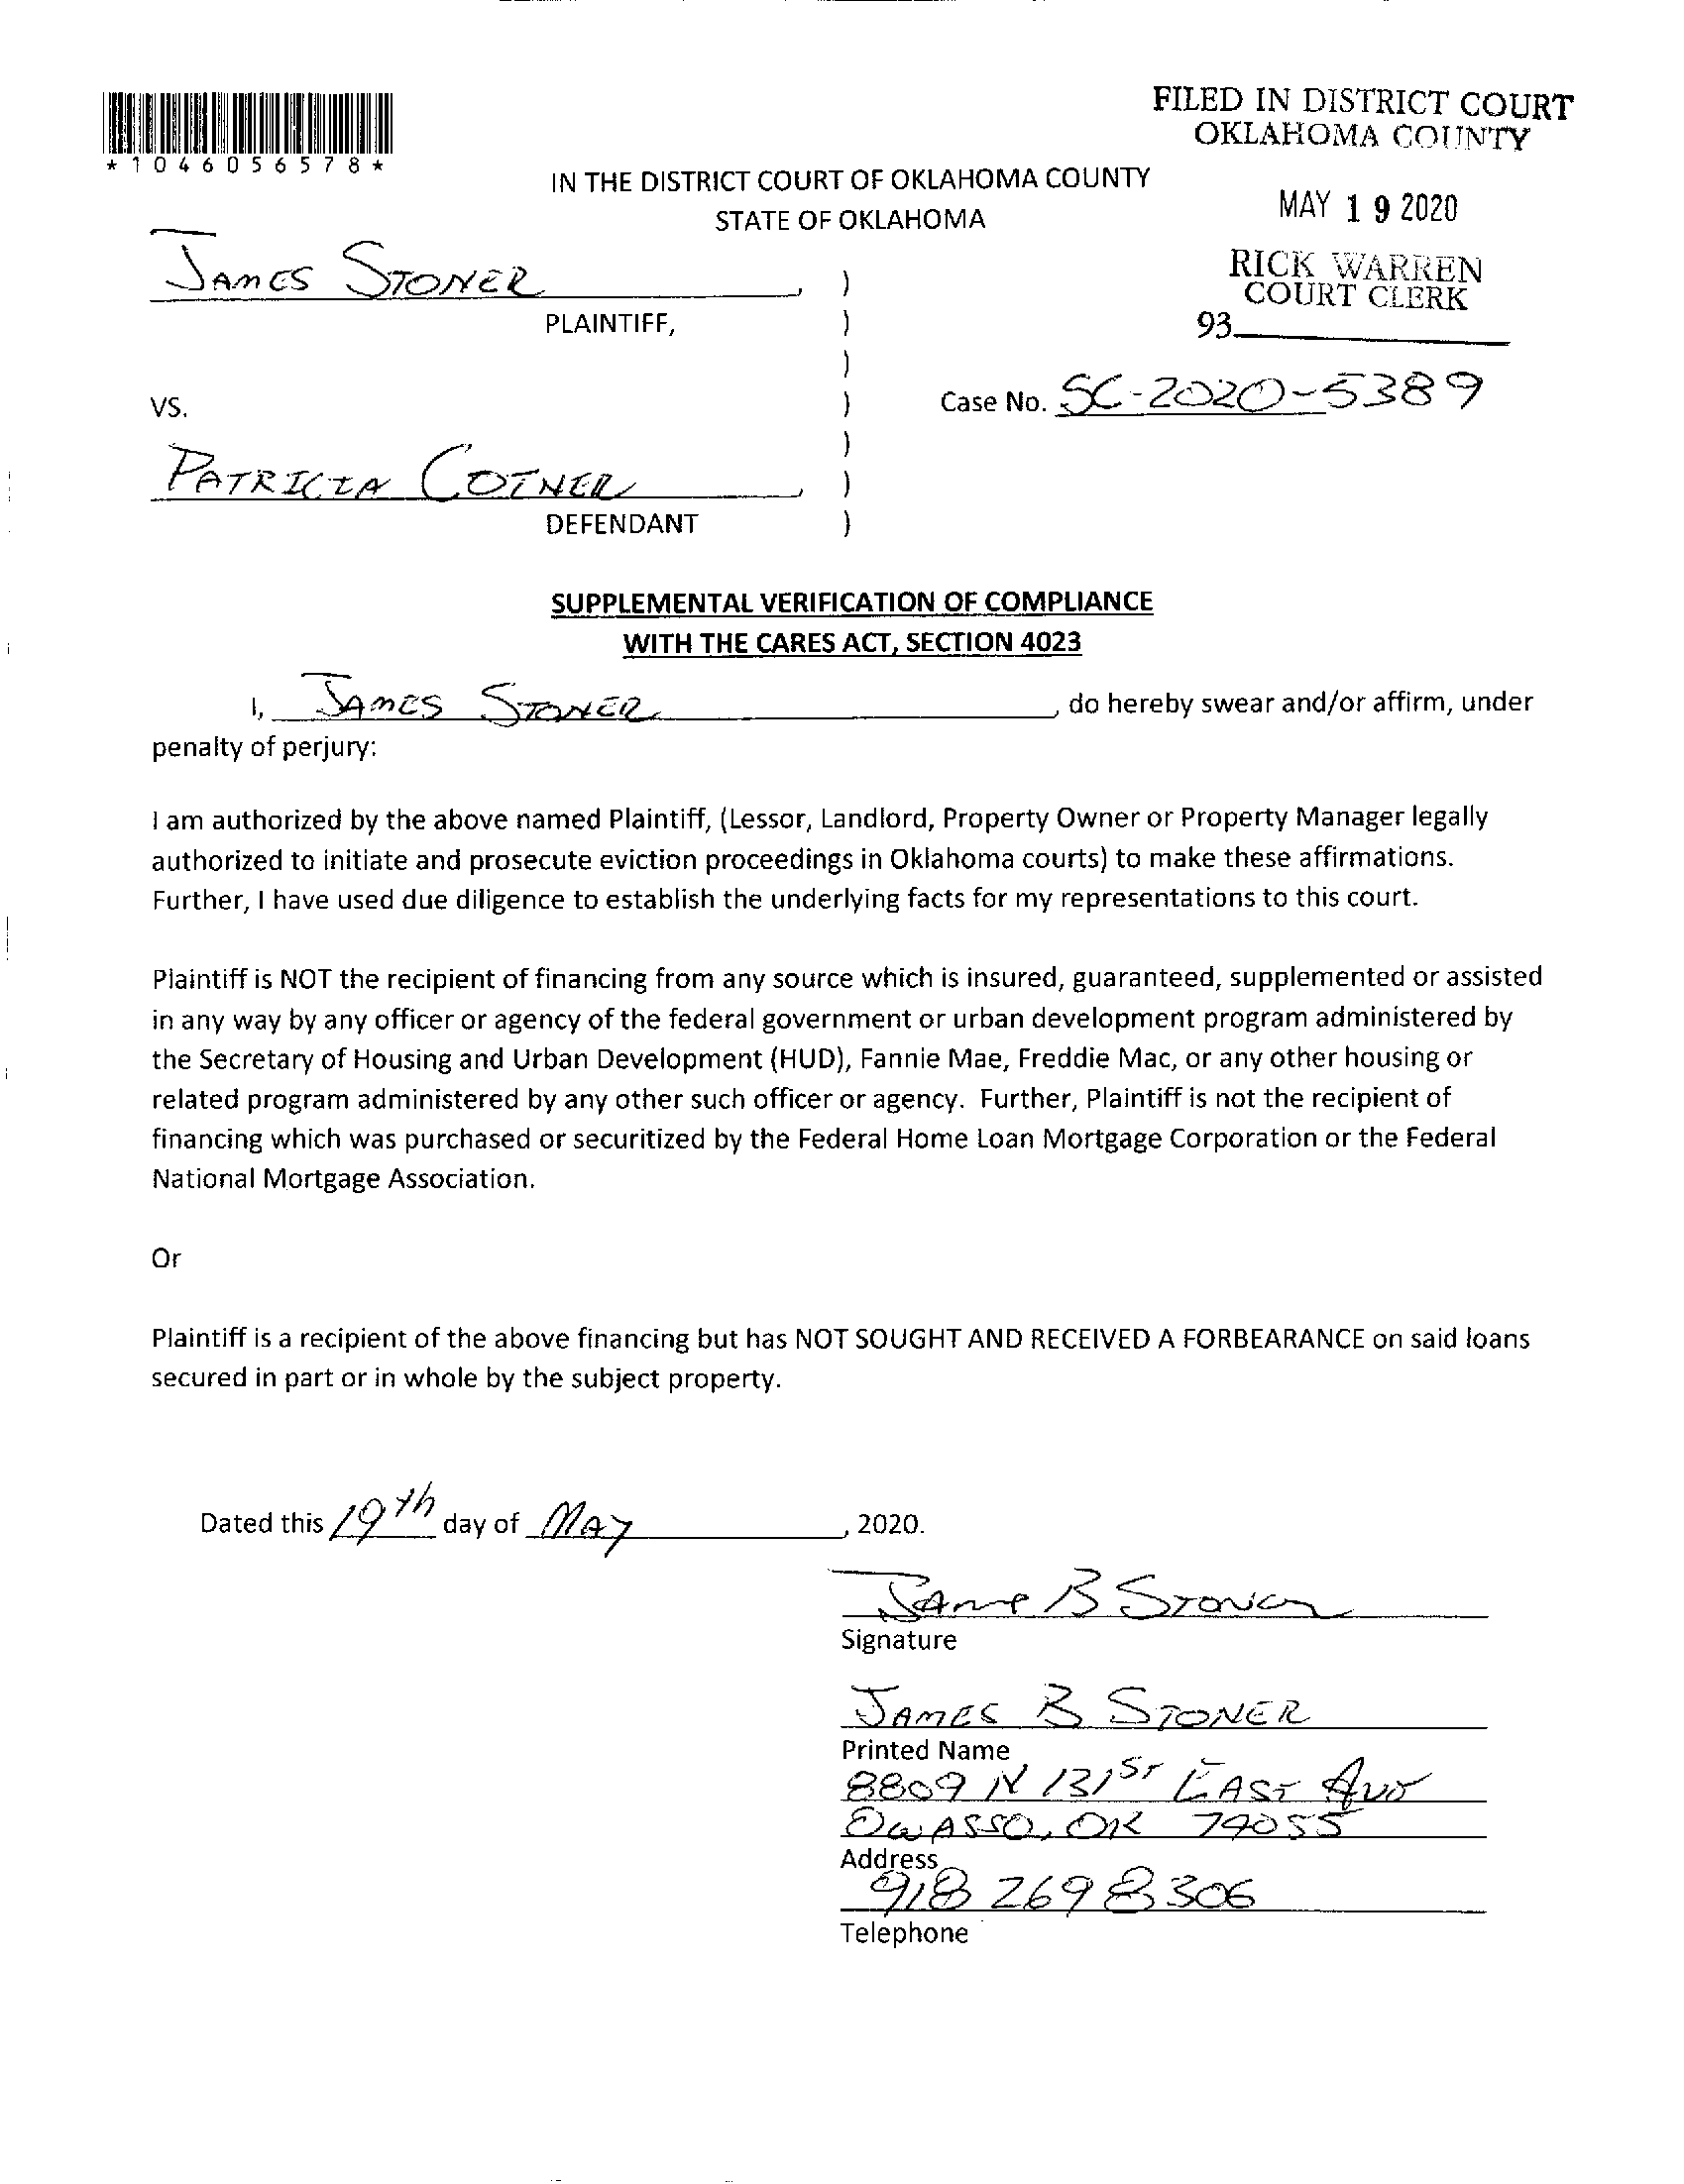 FILED IN DISTRICT COURT
OKLAHOMA COUNTY
*1046056578*
IN THE DISTRICT COURT OF OKLAHOMA COUNTY
STATE OF OKLAHOMA
MAY 19 2020
RICK WARREN
COURT CLERK
93
JAMES STONER, )
PLAINTIFF, )
)
VS. )
Case No. SC-2020-5389
)
PATRICIA COTNER, )
DEFENDANT )
SUPPLEMENTAL VERIFICATION OF COMPLIANCE
WITH THE CARES ACT, SECTION 4023
I, JAMES STONER, do hereby swear and/or affirm, under
penalty of perjury:
I am authorized by the above named Plaintiff, (Lessor, Landlord, Property Owner or Property Manager legally
authorized to initiate and prosecute eviction proceedings in Oklahoma courts) to make these affirmations.
Further, I have used due diligence to establish the underlying facts for my representations to this court.
Plaintiff is NOT the recipient of financing from any source which is insured, guaranteed, supplemented or assisted
in any way by any officer or agency of the federal government or urban development program administered by
the Secretary of Housing and Urban Development (HUD), Fannie Mae, Freddie Mac, or any other housing or
related program administered by any other such officer or agency. Further, Plaintiff is not the recipient of
financing which was purchased or securitized by the Federal Home Loan Mortgage Corporation or the Federal
National Mortgage Association.
Or
Plaintiff is a recipient of the above financing but has NOT SOUGHT AND RECEIVED A FORBEARANCE on said loans
secured in part or in whole by the subject property.
Dated this 19th day of MAY, 2020.
James B Stoner
Signature
JAMES B STONER
Printed Name
8809 N 131ST EAST Ave
OWASSO, OK 74055
Address
918 269 8306
Telephone